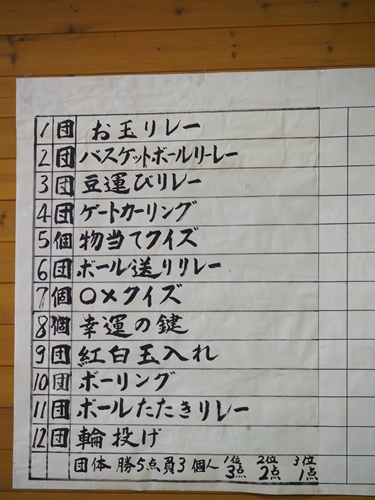 1 団 お玉リレー
2 団 バスケットボールリーレー
3 団 豆運びリレー
4 団 ゲートカーリング
5 個 物当てクイズ
6 団 ボール送りリレー
7 個 〇×クイズ
8 個 幸運の鍵
9 団 紅白玉入れ
10 団 ボーリング
11 団 ボールたたきリレー
12 団 輪投げ
団体 勝5点 員3 個人 1位3点 2位2点 3位1点